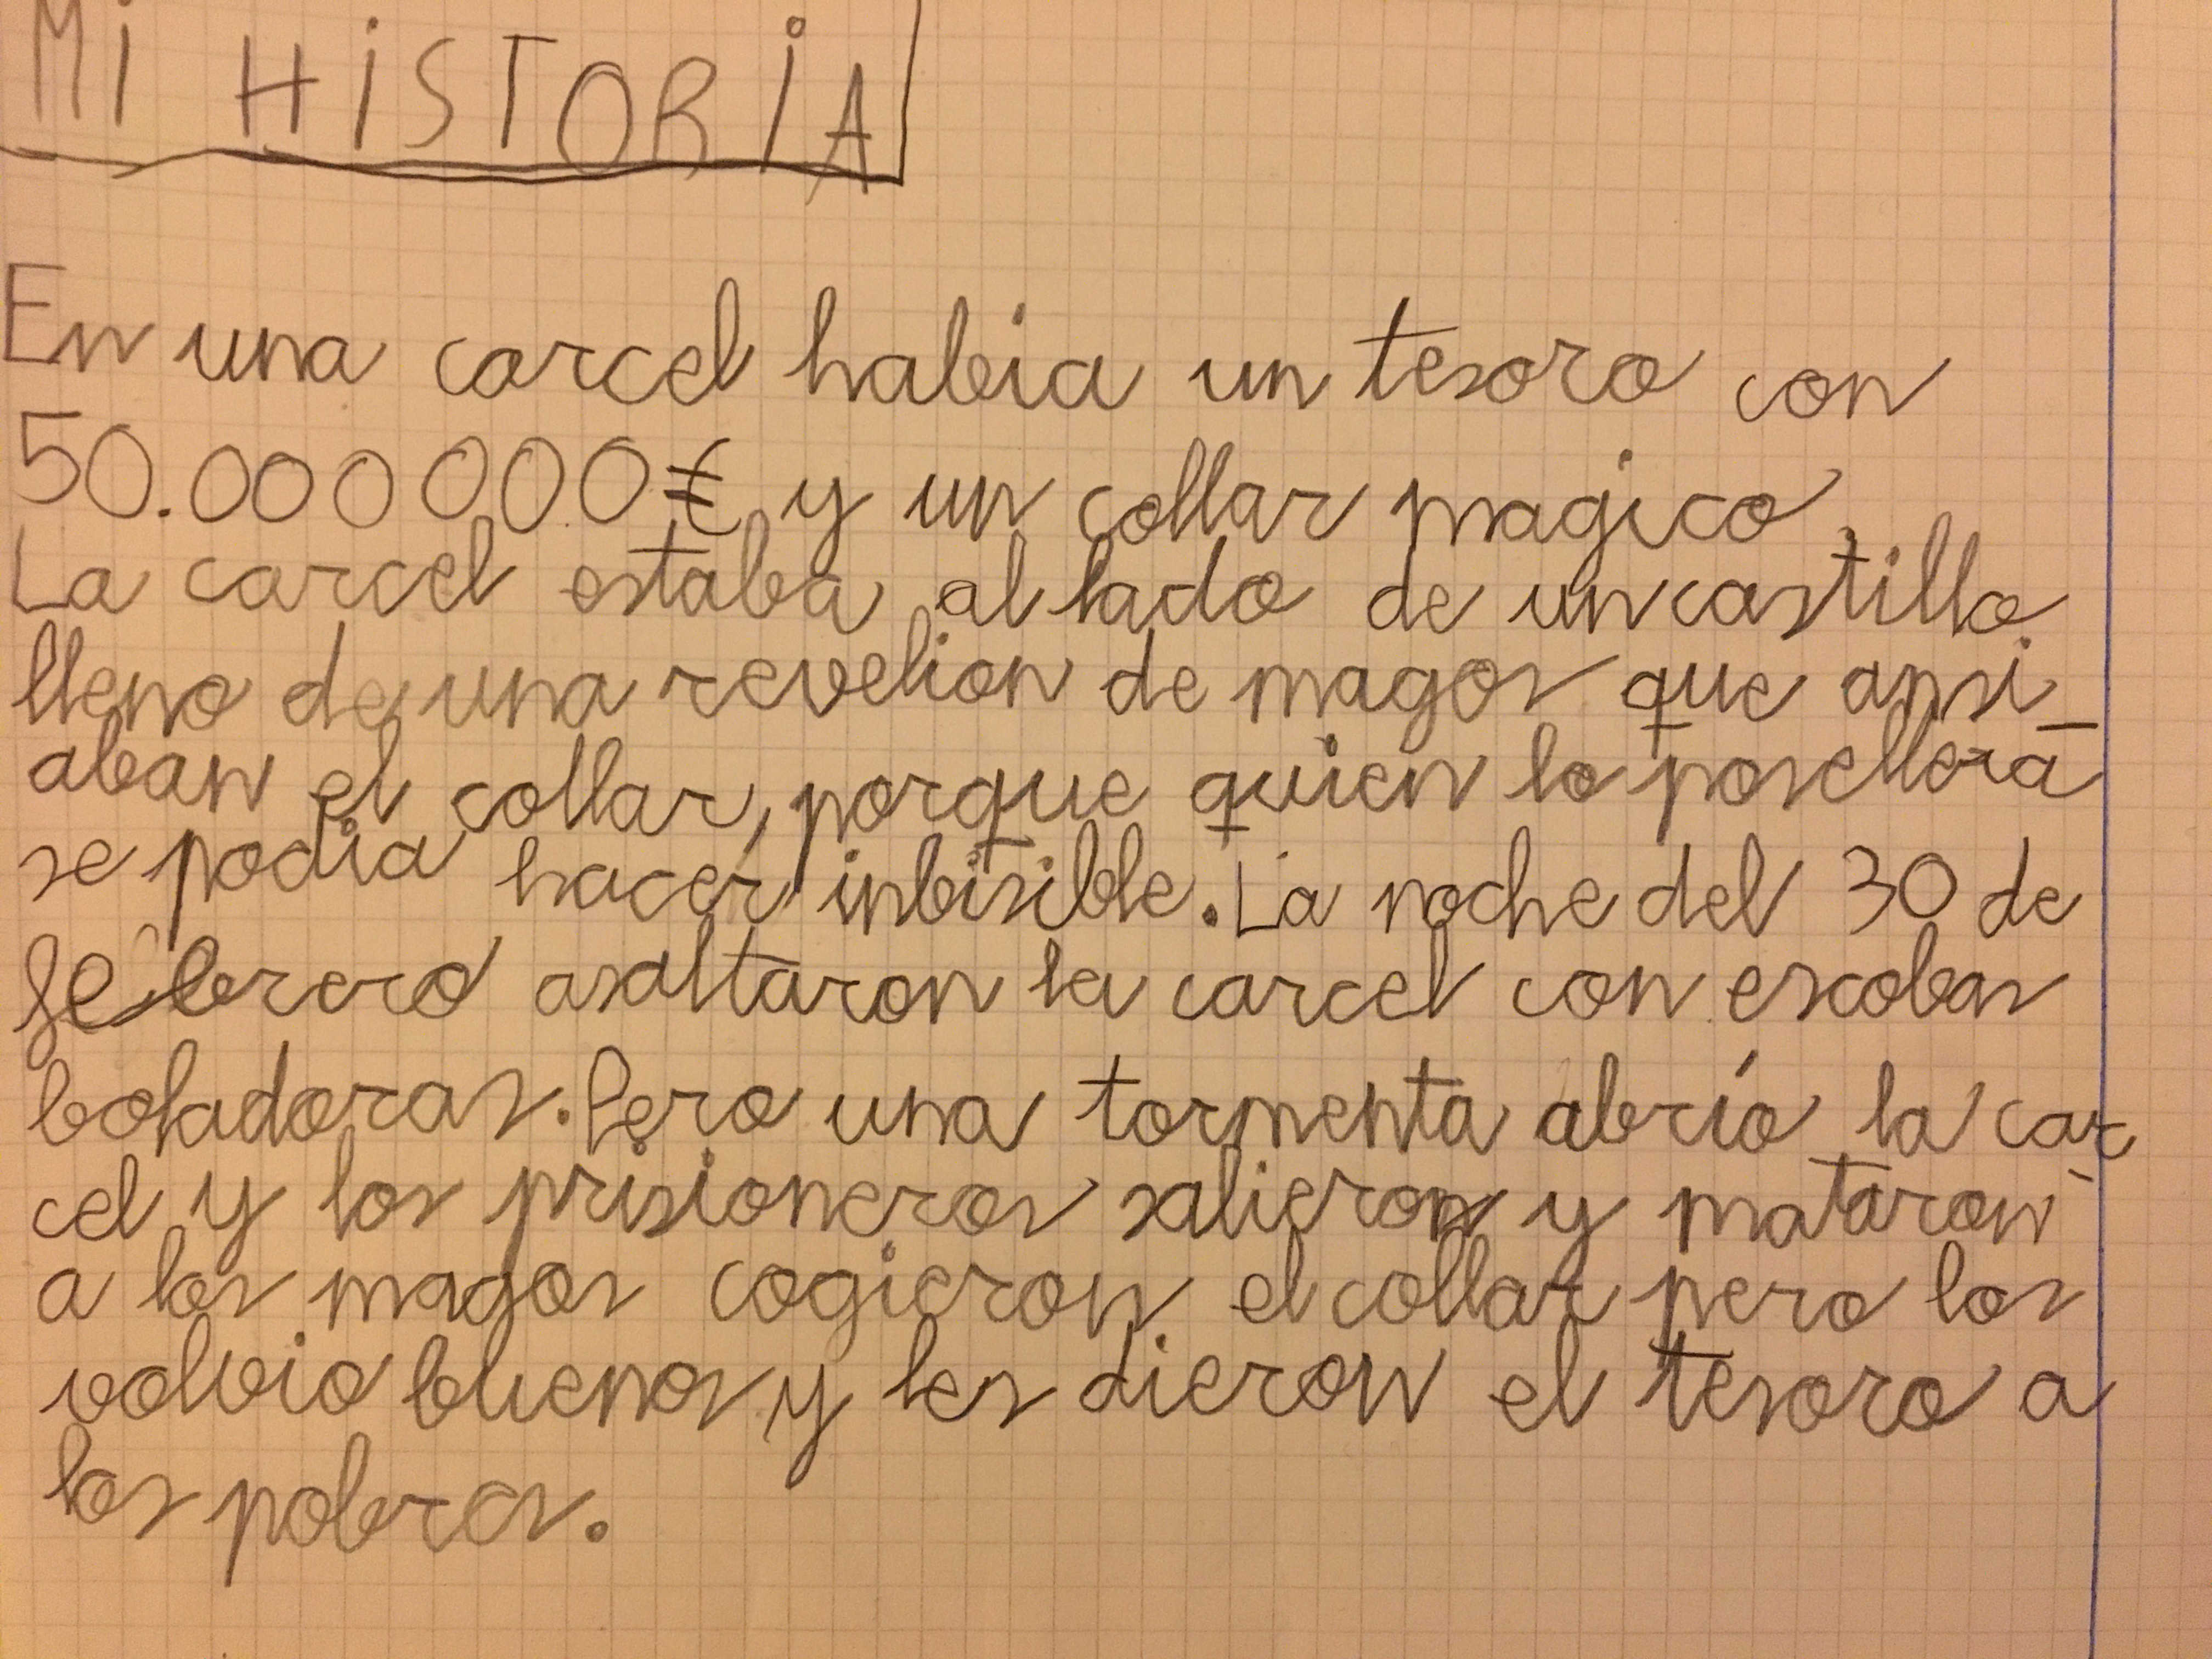 Mi HiSTORiA
En una carcel habia un tesoro con
50.000000€ y un collar magico.
La carcel estaba al lado de un castillo
lleno de una revelion de magos que ansi-
aban el collar, porque quien lo posellera
se podia hacer inbisible. La noche del 30 de
febrero asaltaron la carcel con escobas
boladoras. Pero una tormenta abrío la car-
cel y los prisioneros salieron y mataron
a los magos cogieron el collar pero los
volvio buenos y les dieron el tesoro a
los pobres.